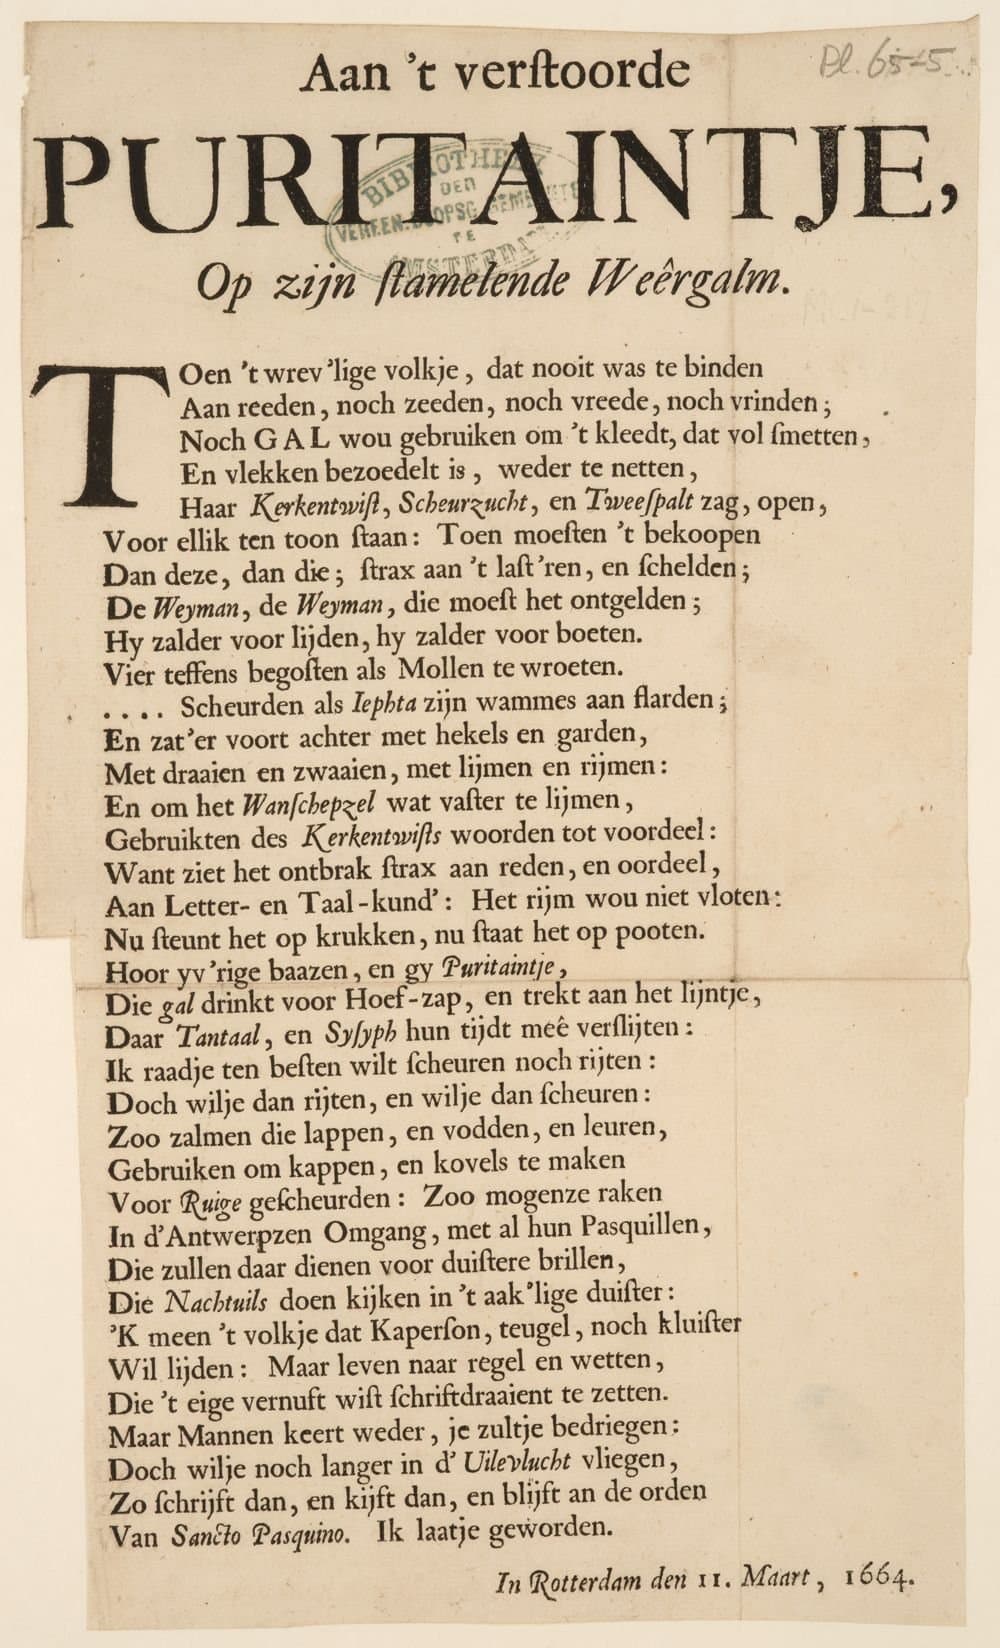 Bl. 65-5
Aan 't verſtoorde
PURITAINTJE,
BIBLIOTHEEK
DER
VEREEN. DOOPSG. GEMEENTE
TE
AMSTERDAM
Op zijn ſtamelende Weêrgalm.
TOen 't wrev'lige volkje, dat nooit was te binden
Aan reeden, noch zeeden, noch vreede, noch vrinden;
Noch GAL wou gebruiken om 't kleedt, dat vol ſmetten,
En vlekken bezoedelt is, weder te netten,
Haar Kerkentwiſt, Scheurzucht, en Tweeſpalt zag, open,
Voor ellik ten toon ſtaan: Toen moeſten 't bekoopen
Dan deze, dan die; ſtrax aan 't laſt'ren, en ſchelden;
De Weyman, de Weyman, die moeſt het ontgelden;
Hy zalder voor lijden, hy zalder voor boeten.
Vier teffens begoſten als Mollen te wroeten.
.... Scheurden als Iephta zijn wammes aan flarden;
En zat'er voort achter met hekels en garden,
Met draaien en zwaaien, met lijmen en rijmen:
En om het Wanſchepzel wat vaſter te lijmen,
Gebruikten des Kerkentwiſts woorden tot voordeel:
Want ziet het ontbrak ſtrax aan reden, en oordeel,
Aan Letter- en Taal-kund': Het rijm wou niet vloten:
Nu ſteunt het op krukken, nu ſtaat het op pooten.
Hoor yv'rige baazen, en gy Puritaintje,
Die gal drinkt voor Hoef-zap, en trekt aan het lijntje,
Daar Tantaal, en Syſyph hun tijdt meê verſlijten:
Ik raadje ten beſten wilt ſcheuren noch rijten:
Doch wilje dan rijten, en wilje dan ſcheuren:
Zoo zalmen die lappen, en vodden, en leuren,
Gebruiken om kappen, en kovels te maken
Voor Ruige geſcheurden: Zoo mogenze raken
In d'Antwerpzen Omgang, met al hun Pasquillen,
Die zullen daar dienen voor duiſtere brillen,
Die Nachtuils doen kijken in 't aak'lige duiſter:
'K meen 't volkje dat Kaperſon, teugel, noch kluiſter
Wil lijden: Maar leven naar regel en wetten,
Die 't eige vernuft wiſt ſchriftdraaient te zetten.
Maar Mannen keert weder, je zultje bedriegen:
Doch wilje noch langer in d' Uilevlucht vliegen,
Zo ſchrijft dan, en kijft dan, en blijft an de orden
Van Sancto Pasquino. Ik laatje geworden.
In Rotterdam den 11. Maart, 1664.